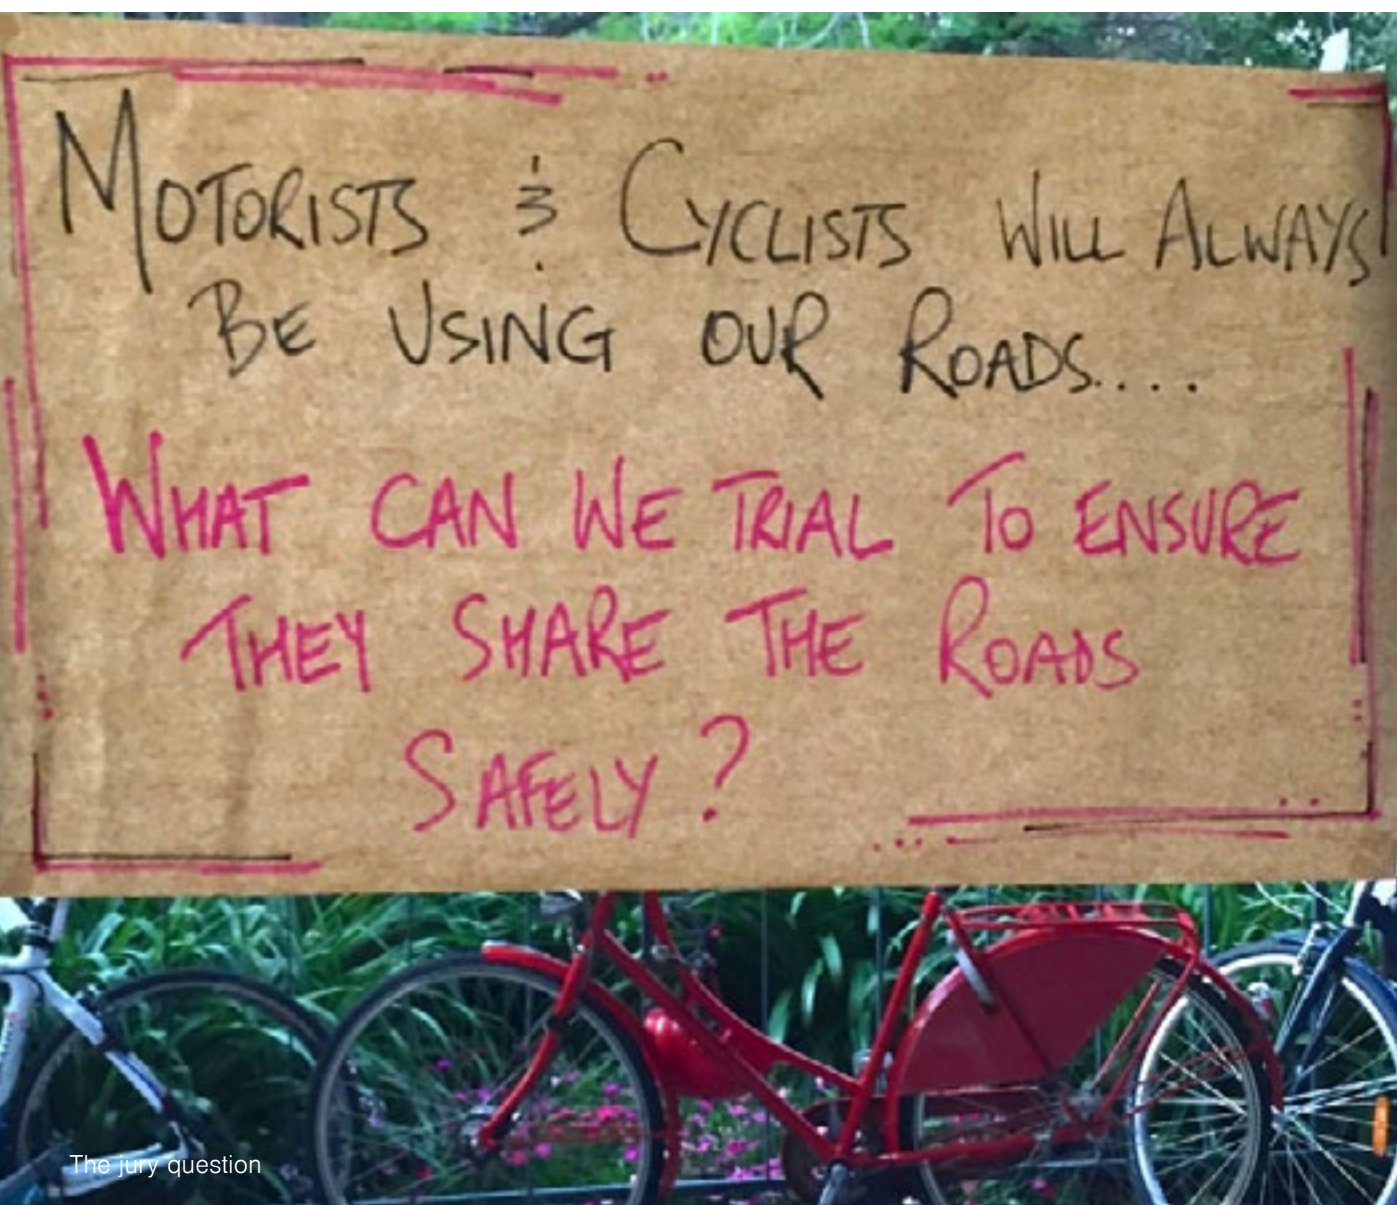 MOTORISTS & CYCLISTS WILL ALWAYS
BE USING OUR ROADS....
WHAT CAN WE TRIAL TO ENSURE
THEY SHARE THE ROADS
SAFELY?
The jury question